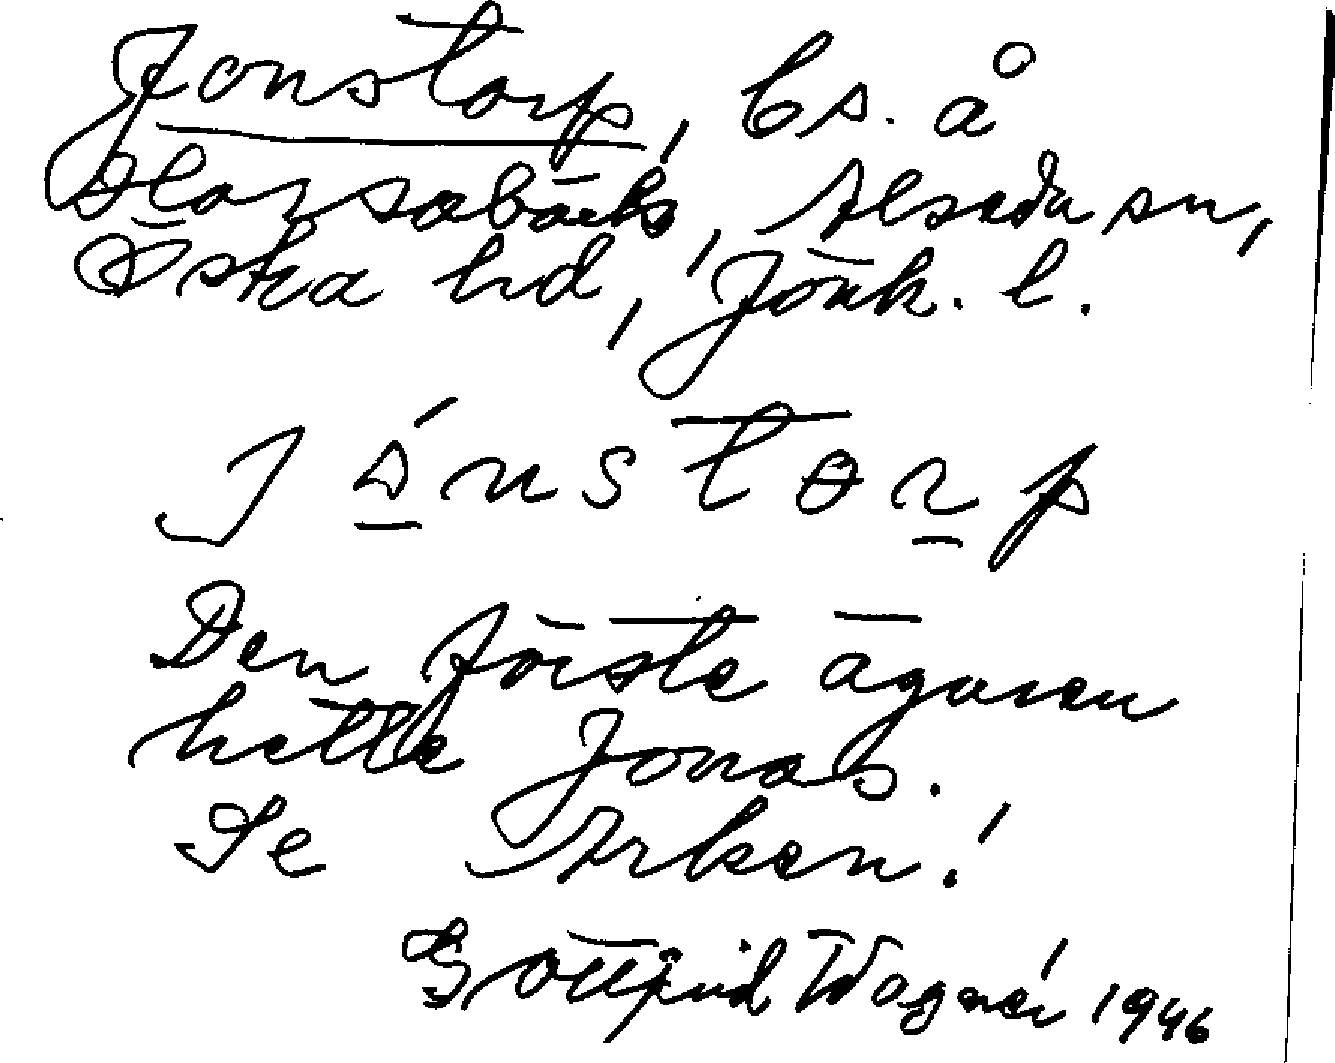 Jonstorp, bs. å
Starsabäck, Alseda sn,
Östra hd, Jönk. l.
J ó n s t o r p
Den förste ägaren
hette Jonas.
Se Arken!
Gottfrid Wagnér 1946